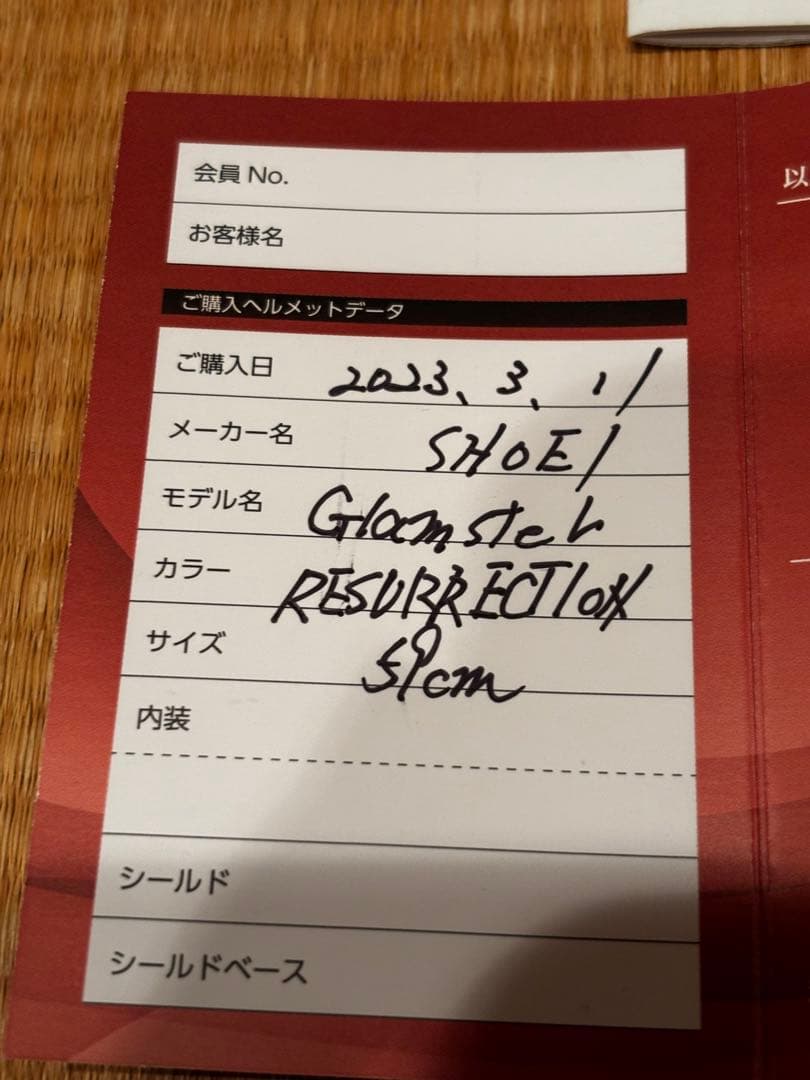 会員 No.
お客様名
以
ご購入ヘルメットデータ
ご購入日 2023、3、11
メーカー名 SHOEI
モデル名 Glamster
カラー RESURRECTION
サイズ 59cm
内装
シールド
シールドベース